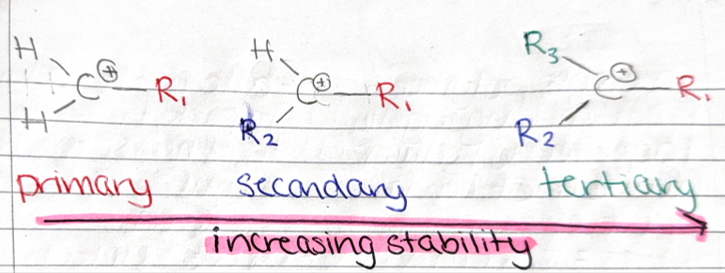 H H R₃
C⊕ R₁ C⊕ R₁ C⊕ R₁
H R₂ R₂
primary secondary tertiary
increasing stability